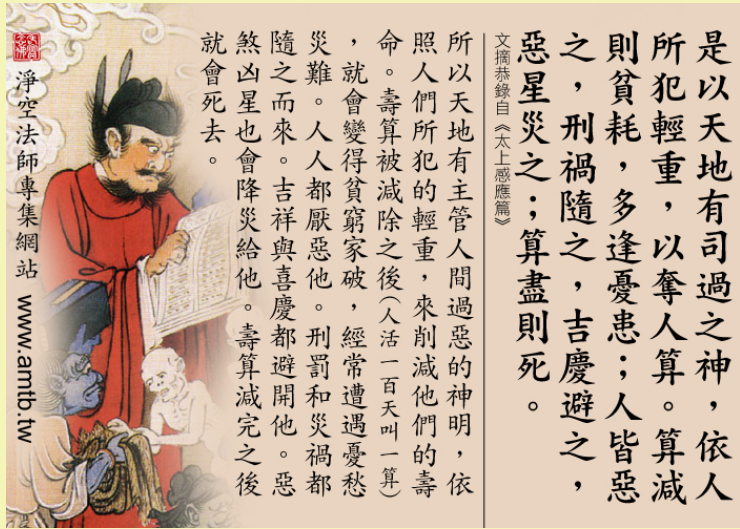 是以天地有司過之神，依人
所犯輕重，以奪人算。算減
則貧耗，多逢憂患；人皆惡
之，刑禍隨之，吉慶避之，
惡星災之；算盡則死。
文摘恭錄自《太上感應篇》
所以天地有主管人間過惡的神明，依
照人們所犯的輕重，來削減他們的壽
命。壽算被減除之後(人活一百天叫一算)
，就會變得貧窮家破，經常遭遇憂愁
災難。人人都厭惡他。刑罰和災禍都
隨之而來。吉祥與喜慶都避開他。惡
煞凶星也會降災給他。壽算減完之後
就會死去。
淨空法師專集網站 www.amtb.tw